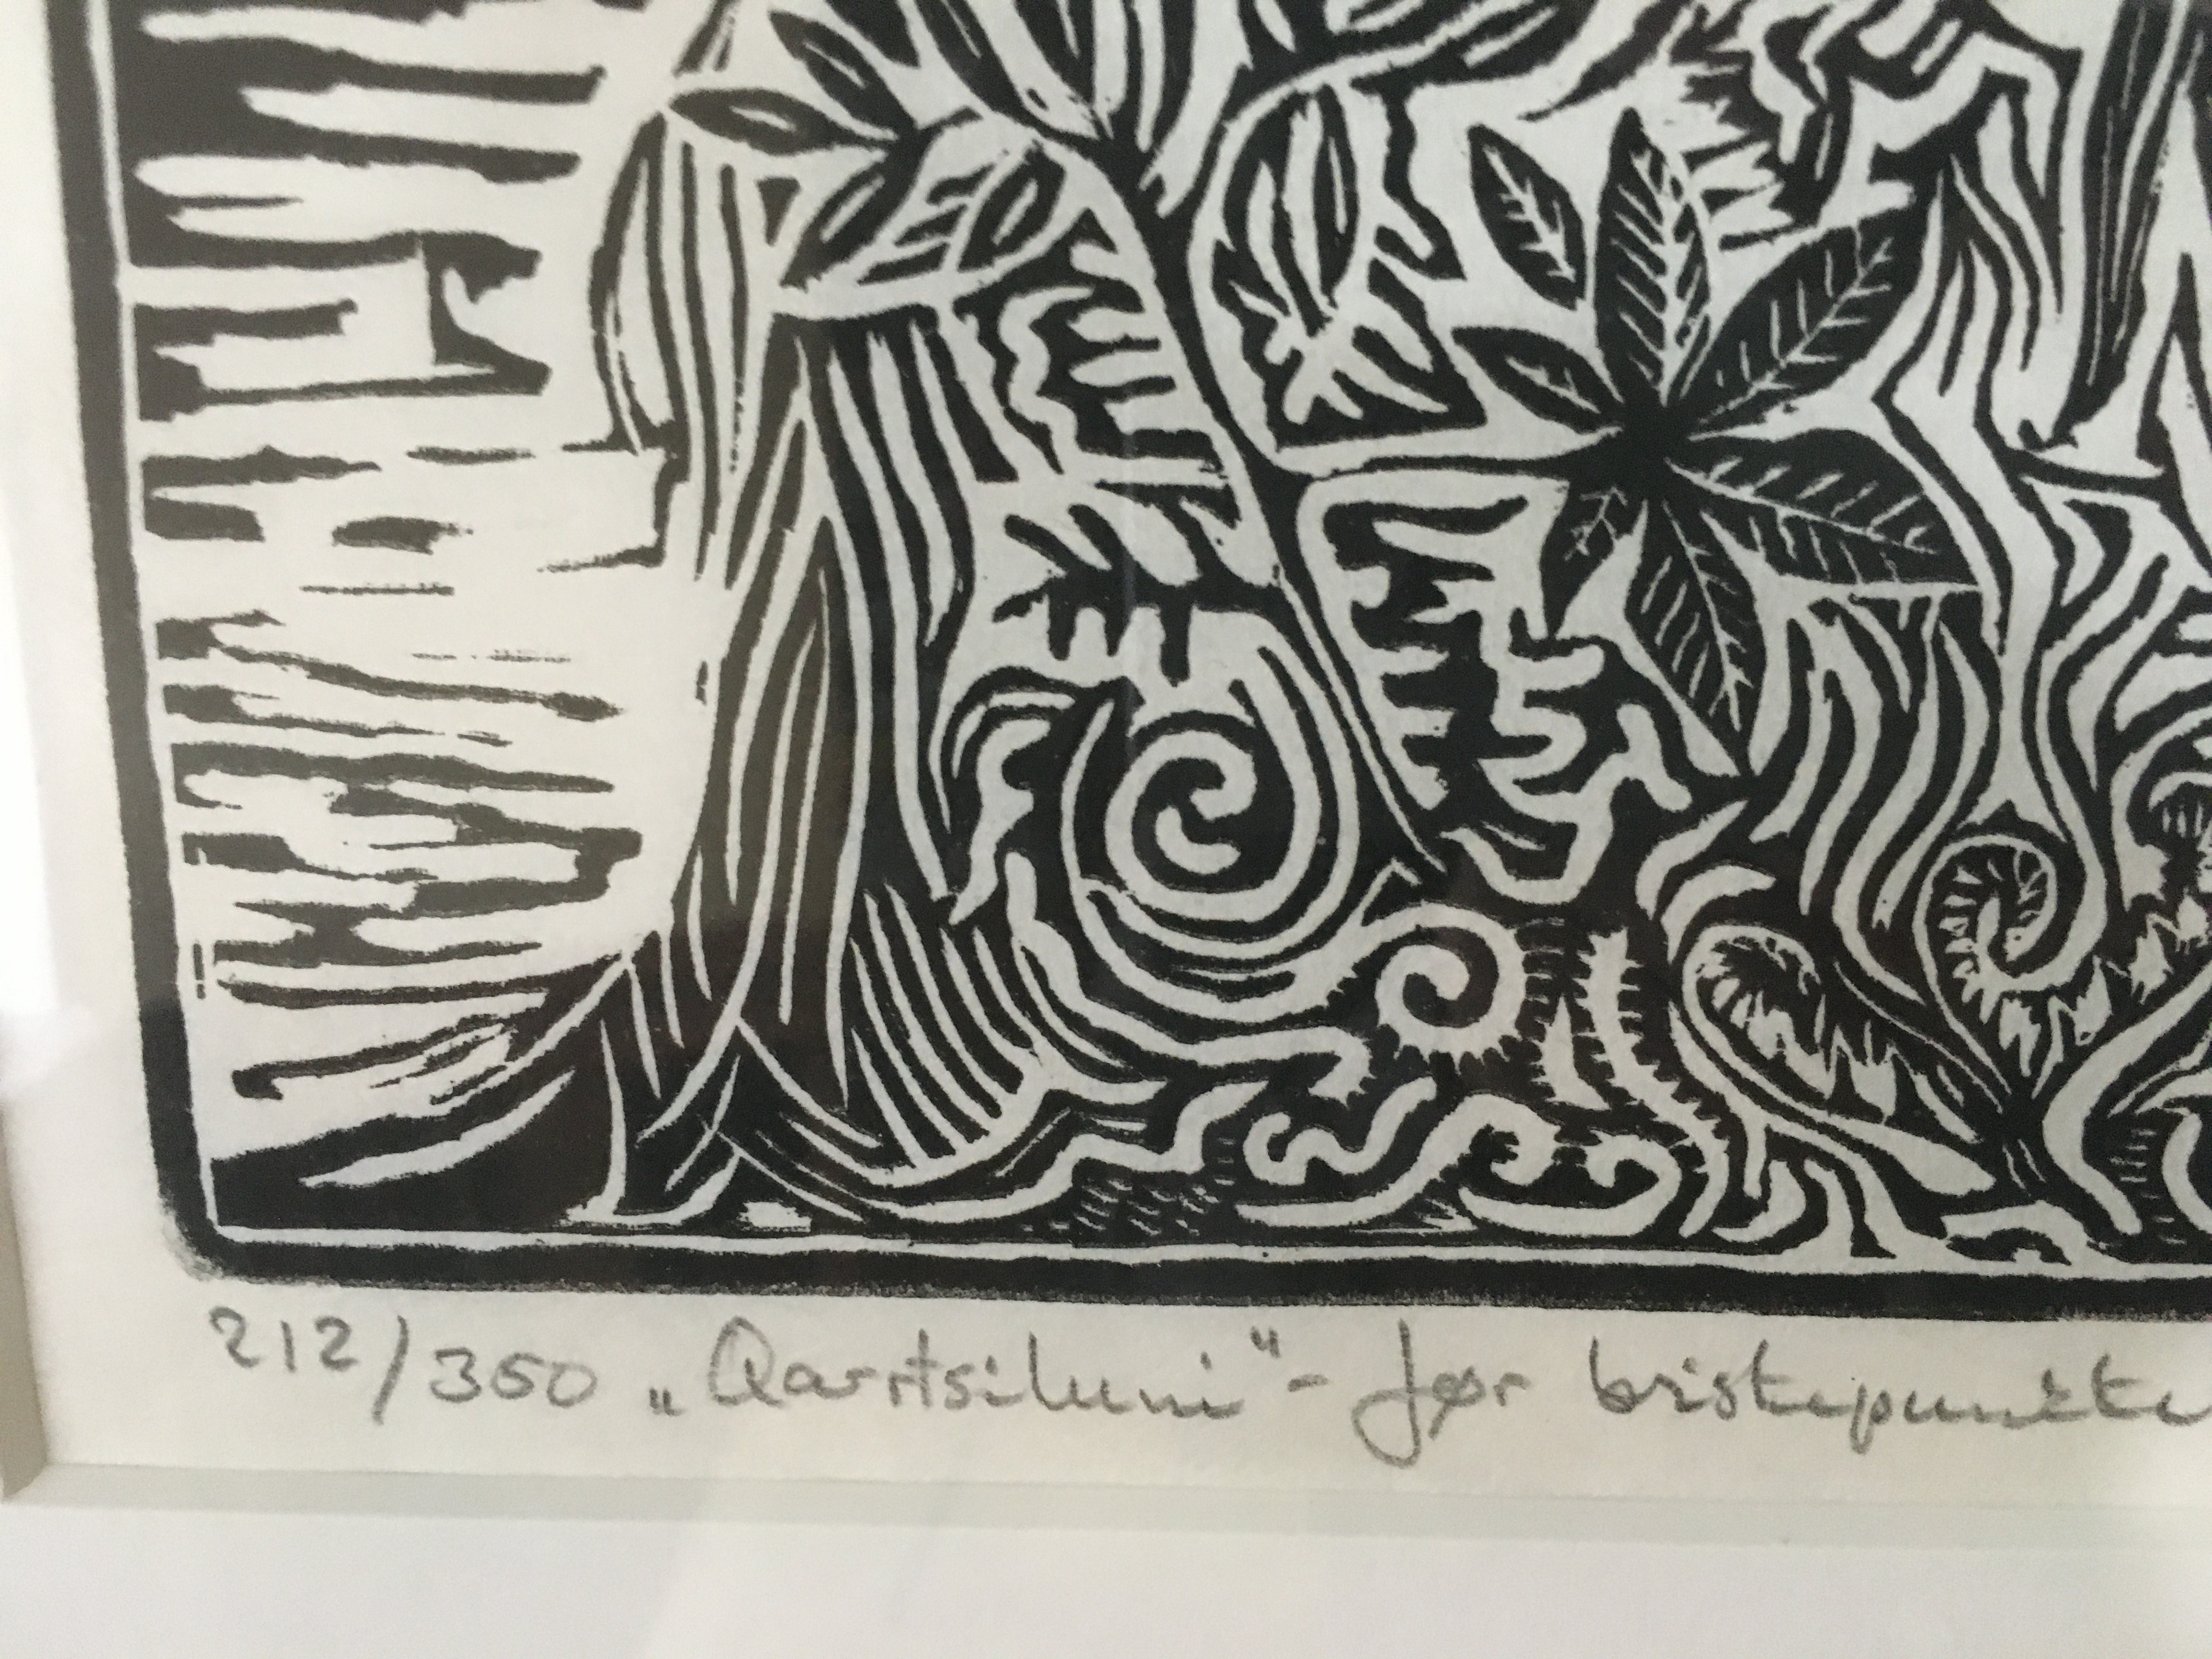 212/350 „Qarrtsiluni" - før bristepunkte